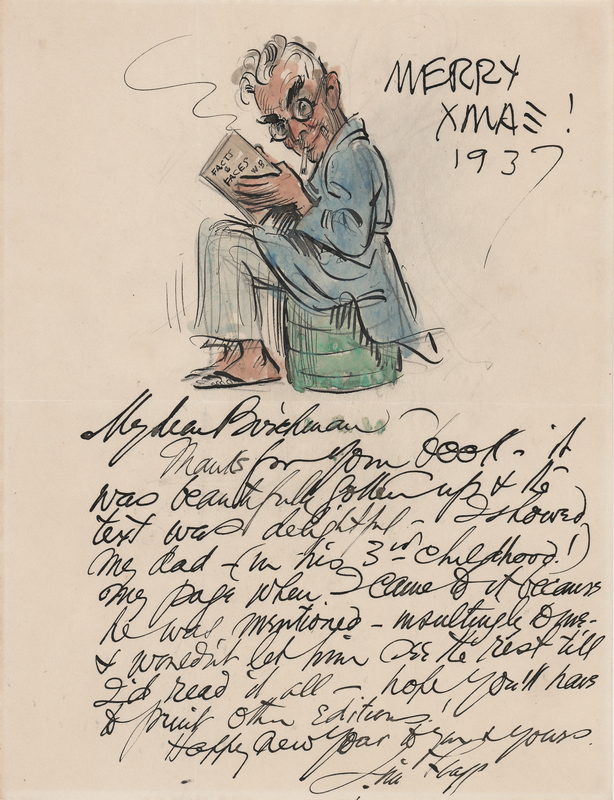 MERRY
XMAS!
1937
FACTS
&
FACES
My dear Birchman
Thanks for your book - it
was beautifully gotten up & the
text was delightful - I showed
my dad - (in his 3rd childhood!)
my page when I came to it because
he was mentioned - insultingly to me -
& wouldn't let him see the rest till
I'd read it all - hope you'll have
to print other Editions!
Happy New Year to you & yours.
Jim Flagg